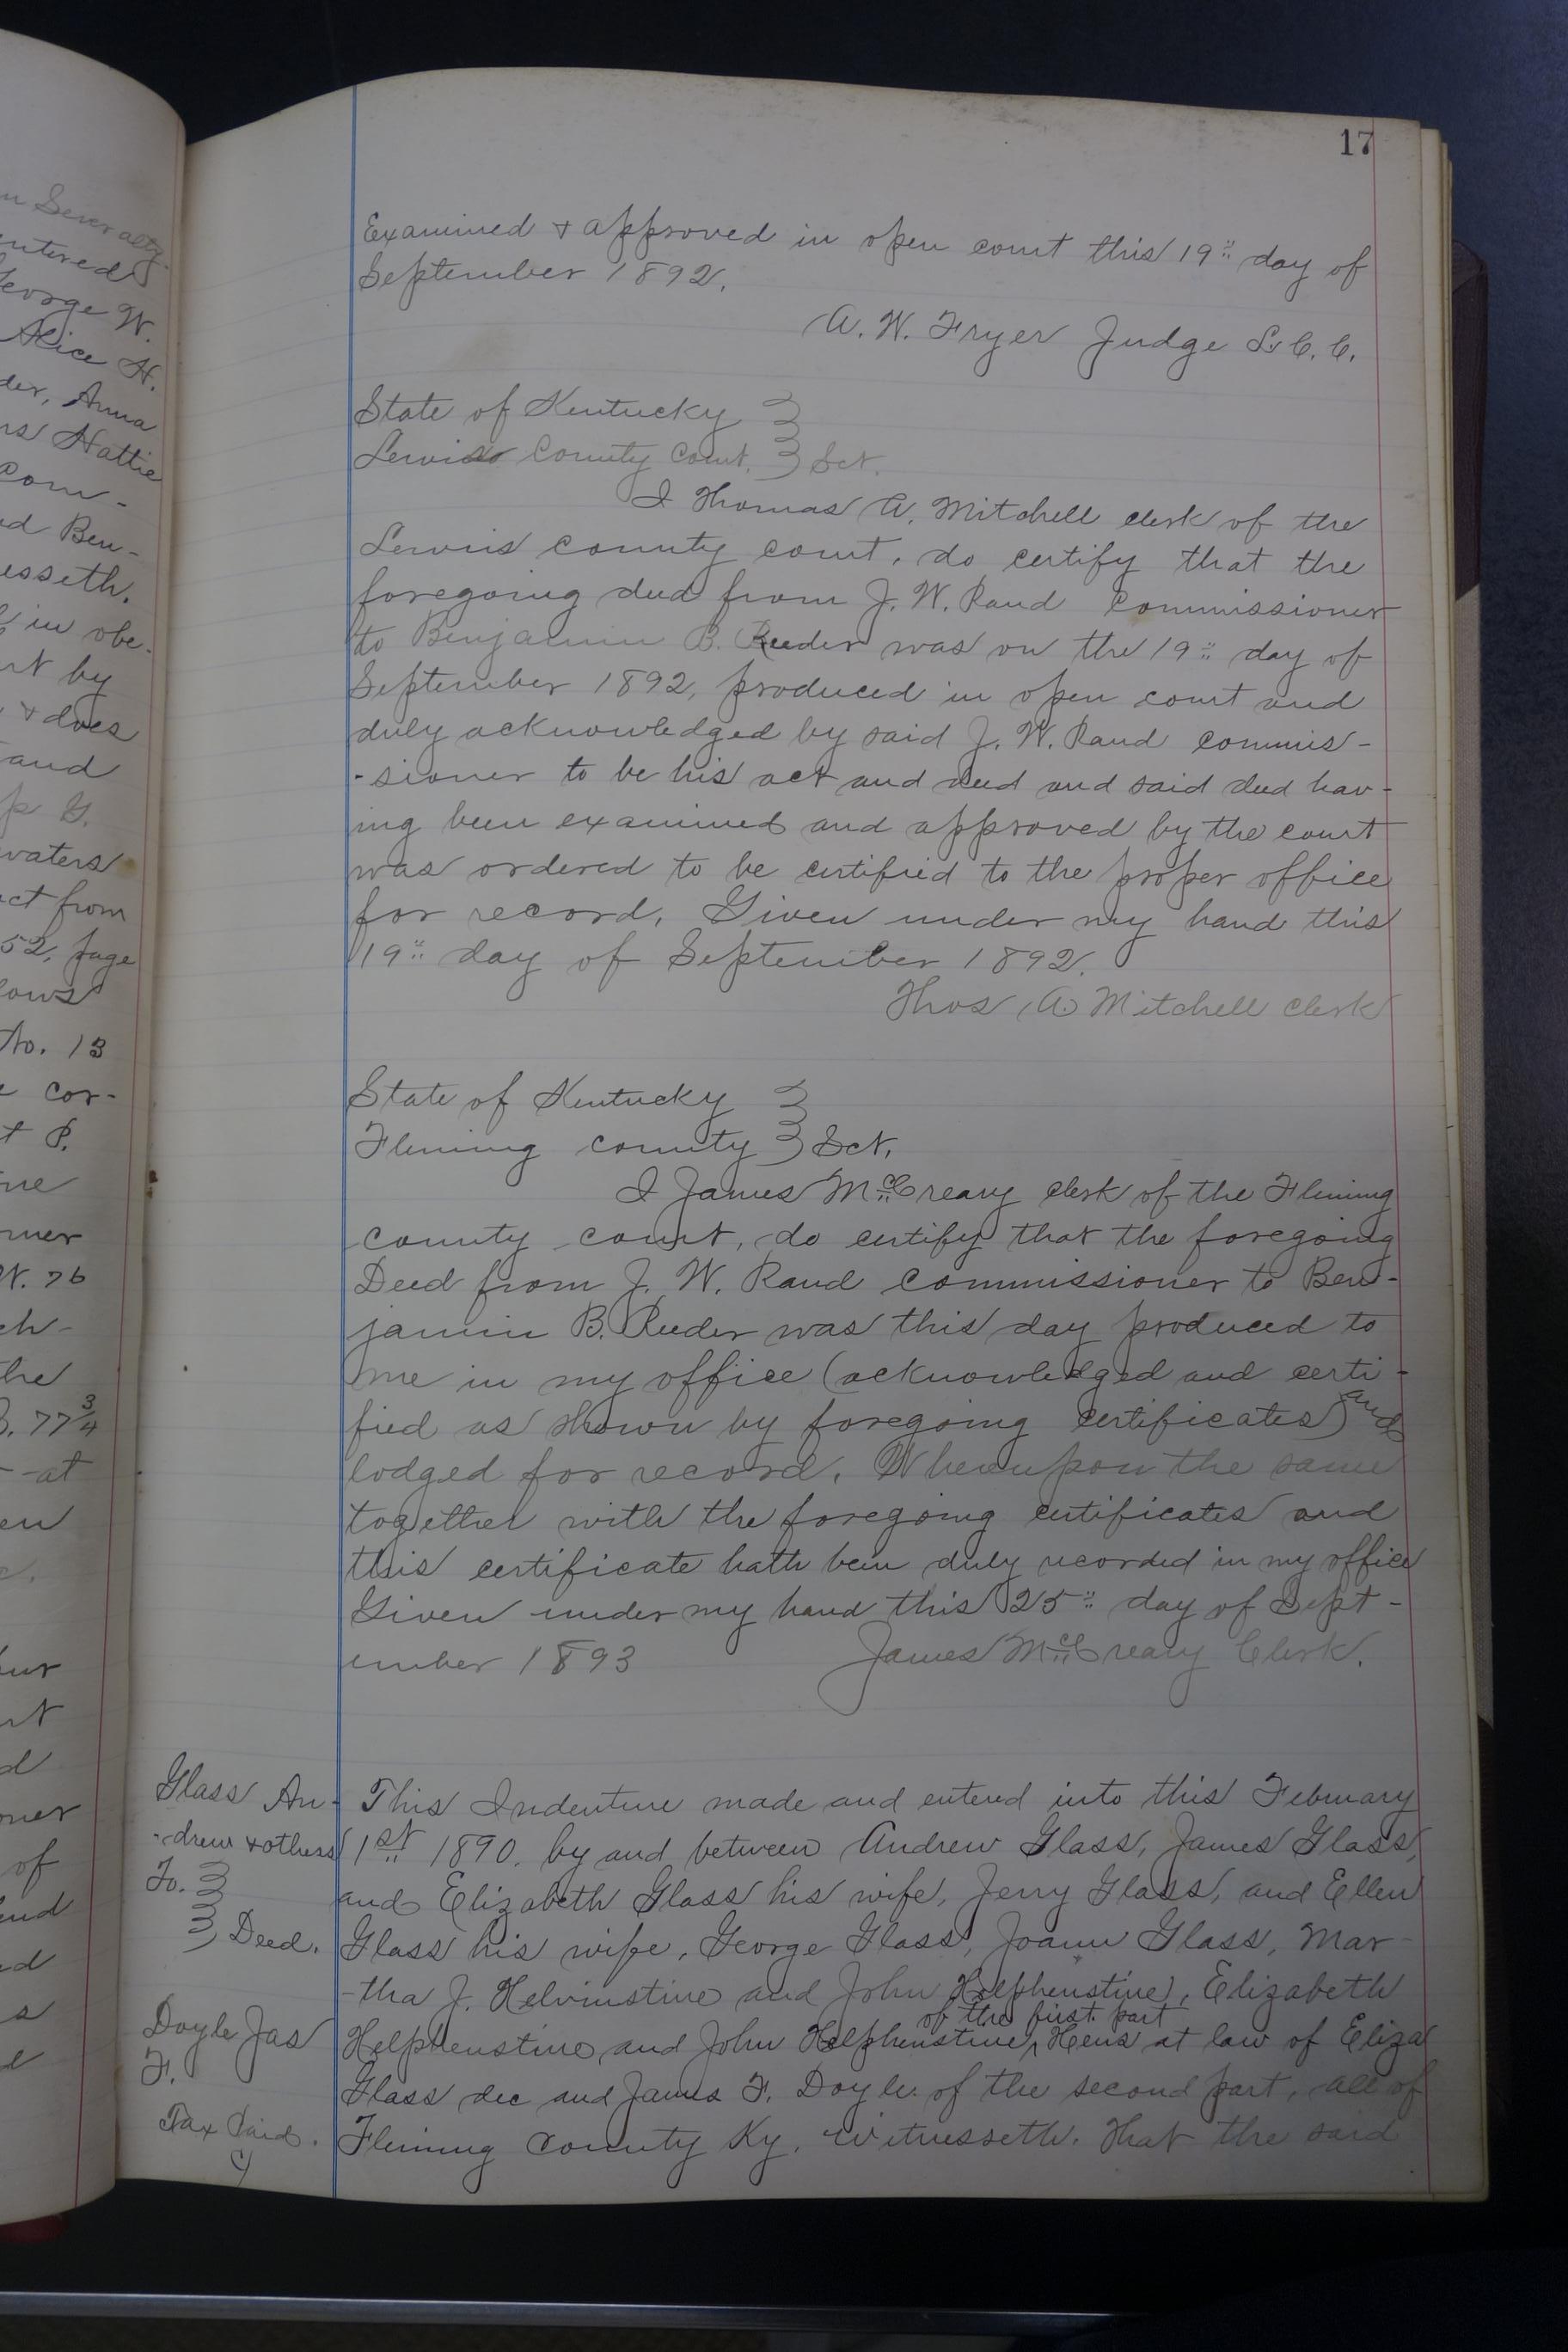 n Severalty
entered
George W.
Alice H.
der, Anna
rs Hattie
Com-
d Ben-
esseth.
in obe-
rt by
+ does
and
p G.
waters
ct from
52, page
lows
No. 13
e cor-
t P.
ne
rner
W. 76
ch-
the
. 77 3/4
-at
en
our
rt
d
oner
of
end
ed
s
d
17
Examined + approved in open court this 19" day of
September 1892.
A. W. Fryer Judge L. C. C.
State of Kentucky
Lewis County Court. Sct.
I Thomas A. Mitchell clerk of the
Lewis county court, do certify that the
foregoing deed from J. W. Rand Commissioner
to Benjamin B. Reeder was on the 19" day of
September 1892, produced in open court and
duly acknowledged by said J. W. Rand commis-
-sioner to be his act and deed and said deed hav-
ing been examined and approved by the court
was ordered to be certified to the proper office
for record. Given under my hand this
19" day of September 1892.
Thos A. Mitchell clerk
State of Kentucky
Fleming county Sct.
I James McCreary clerk of the Fleming
county court, do certify that the foregoing
Deed from J. W. Rand Commissioner to Ben-
jamin B. Reeder was this day produced to
me in my office (acknowledged and certi-
fied as shown by foregoing certificates) and
lodged for record. Whereupon the same
together with the foregoing certificates and
this certificate hath been duly recorded in my office
Given under my hand this 25" day of Sept-
ember 1893 James McCreary Clerk.
Glass An-
-drew + others
To.
Deed.
Doyle Jas
F.
Tax Paid.
This Indenture made and entered into this February
1st 1890. by and between Andrew Glass, James Glass,
and Elizabeth Glass his wife, Jerry Glass, and Ellen
Glass his wife, George Glass, Joann Glass, Mar-
-tha J. Helvinstine and John Helphenstine, Elizabeth
of the first part
Helphenstine and John Helphenstine, Heirs at law of Eliza
Glass dec and James F. Doyle of the second part, all of
Fleming County Ky. Witnesseth. That the said